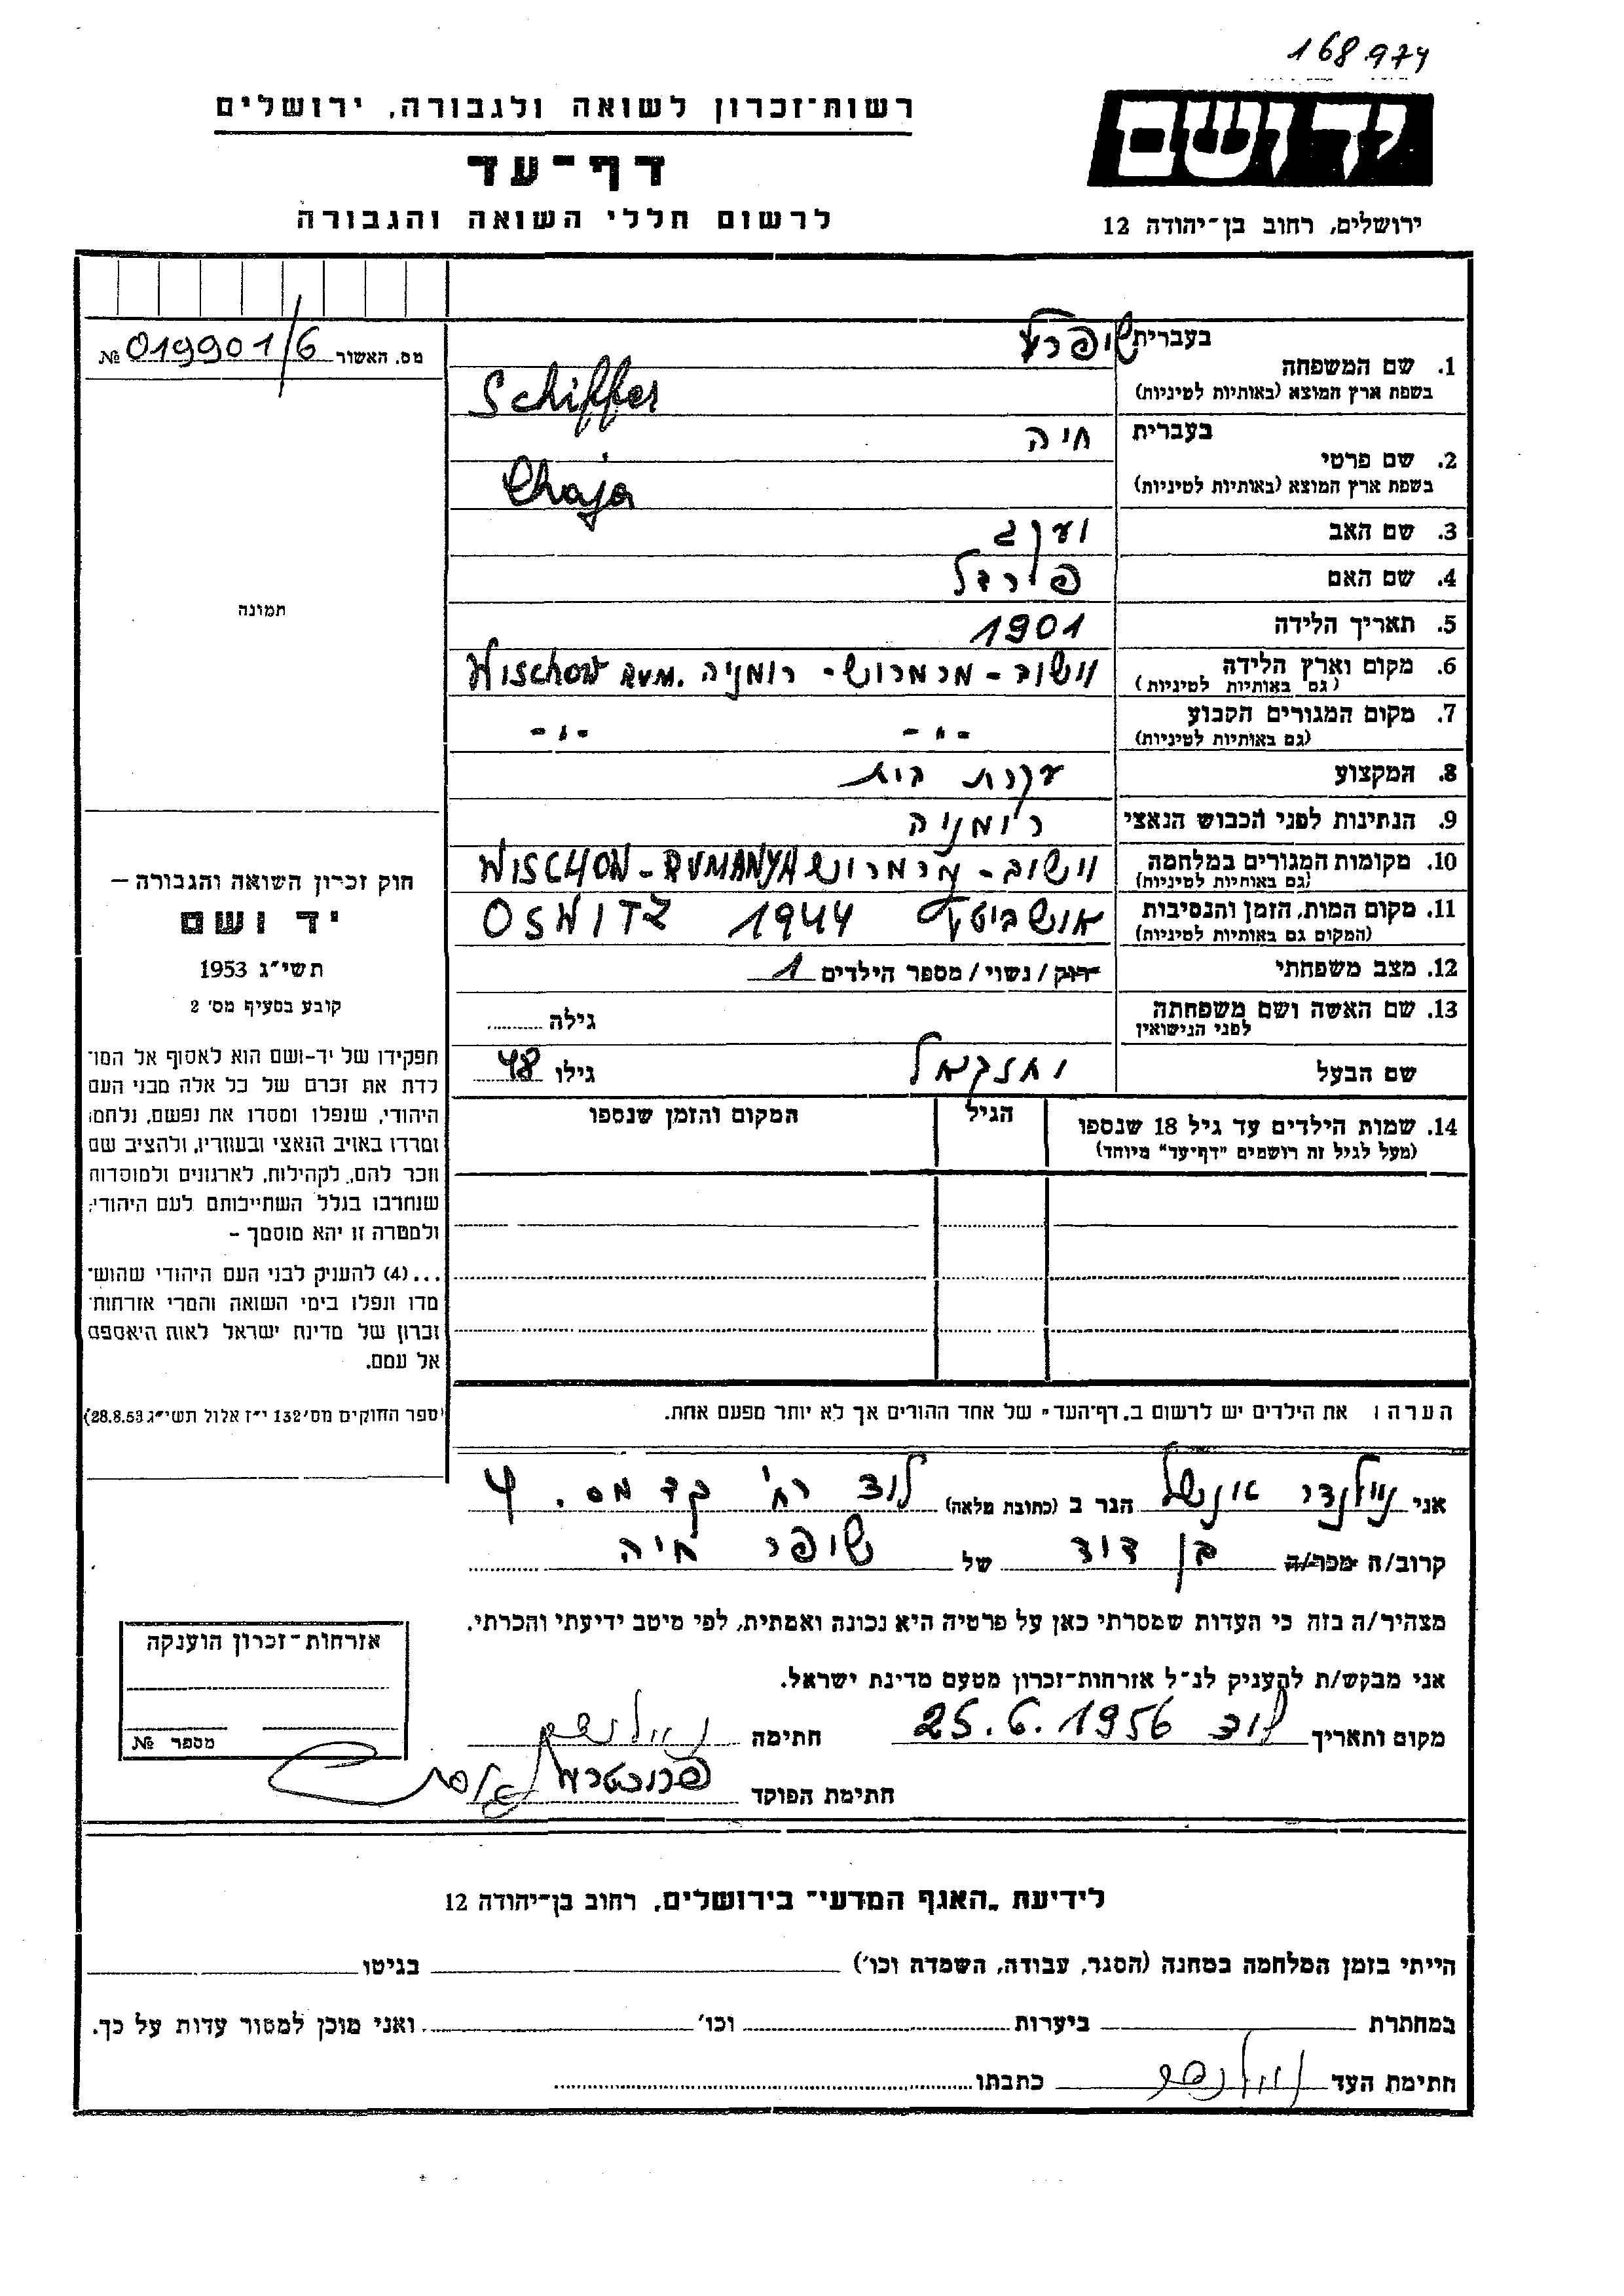 168974
יד ושם
ירושלים, רחוב בן־יהודה 12
רשות־זכרון לשואה ולגבורה, ירושלים
דף־עד
לרשום חללי השואה והגבורה
מס. האשור № 019901/6
תמונה
1. שם המשפחה בעברית
בשפת ארץ המוצא (באותיות לטיניות) Schiffer
2. שם פרטי בעברית חיה
בשפת ארץ המוצא (באותיות לטיניות) Chaja
3. שם האב
4. שם האם
5. תאריך הלידה 1901
6. מקום וארץ הלידה (גם באותיות לטיניות) ווישוב - מרמרוש - רומניה Wischow RUM.
7. מקום המגורים הקבוע (גם באותיות לטיניות) -"- -"-
8. המקצוע עקרת בית
9. הנתינות לפני הכבוש הנאצי רומניה
10. מקומות המגורים במלחמה (גם באותיות לטיניות) ווישוב - מרמרוש WISCHOW - RUMANYA
11. מקום המות, הזמן והנסיבות (המקום גם באותיות לטיניות) אושביטץ 1944 OSWITZ
12. מצב משפחתי רוק / נשוי / מספר הילדים 1
13. שם האשה ושם משפחתה לפני הנישואין גילה
שם הבעל גילו 48
14. שמות הילדים עד גיל 18 שנספו (מעל לגיל זה רושמים "דף־עד" מיוחד) הגיל המקום והזמן שנספו
הערה: את הילדים יש לרשום ב"דף־העד" של אחד ההורים אך לא יותר מפעם אחת.
חוק זכרון השואה והגבורה –
יד ושם
תשי"ג 1953
קובע בסעיף מס' 2
תפקידו של יד-ושם הוא לאסוף אל המו־
לדת את זכרם של כל אלה מבני העם
היהודי, שנפלו ומסרו את נפשם, נלחמו
ומרדו באויב הנאצי ובעוזריו, ולהציב שם
וזכר להם, לקהילות, לארגונים ולמוסדות
שנחרבו בגלל השתייכותם לעם היהודי;
ולמטרה זו יהא מוסמך –
...(4) להעניק לבני העם היהודי שהוש־
מדו ונפלו בימי השואה והמרי אזרחות־
זכרון של מדינת ישראל לאות היאספם
אל עמם.
(ספר החוקים מס' 132 י"ז אלול תשי"ג 28.8.53)
אני ווילנדר אנשל הגר ב (כתובת מלאה) לוד רח' קד מס. 4
קרוב/ה מכר/ה בן דוד של שיפר חיה
מצהיר/ה בזה כי העדות שמסרתי כאן על פרטיה היא נכונה ואמתית, לפי מיטב ידיעתי והכרתי.
אני מבקש/ת להעניק לנ"ל אזרחות־זכרון מטעם מדינת ישראל.
מקום ותאריך לוד 25.6.1956 חתימה
חתימת הפוקד
אזרחות־זכרון הוענקה
מספר №
לידיעת "האגף המדעי" בירושלים, רחוב בן־יהודה 12
הייתי בזמן המלחמה במחנה (הסגר, עבודה, השמדה וכו') בגיטו
במחתרת ביערות וכו' ואני מוכן למסור עדות על כך.
חתימת העד כתבתו